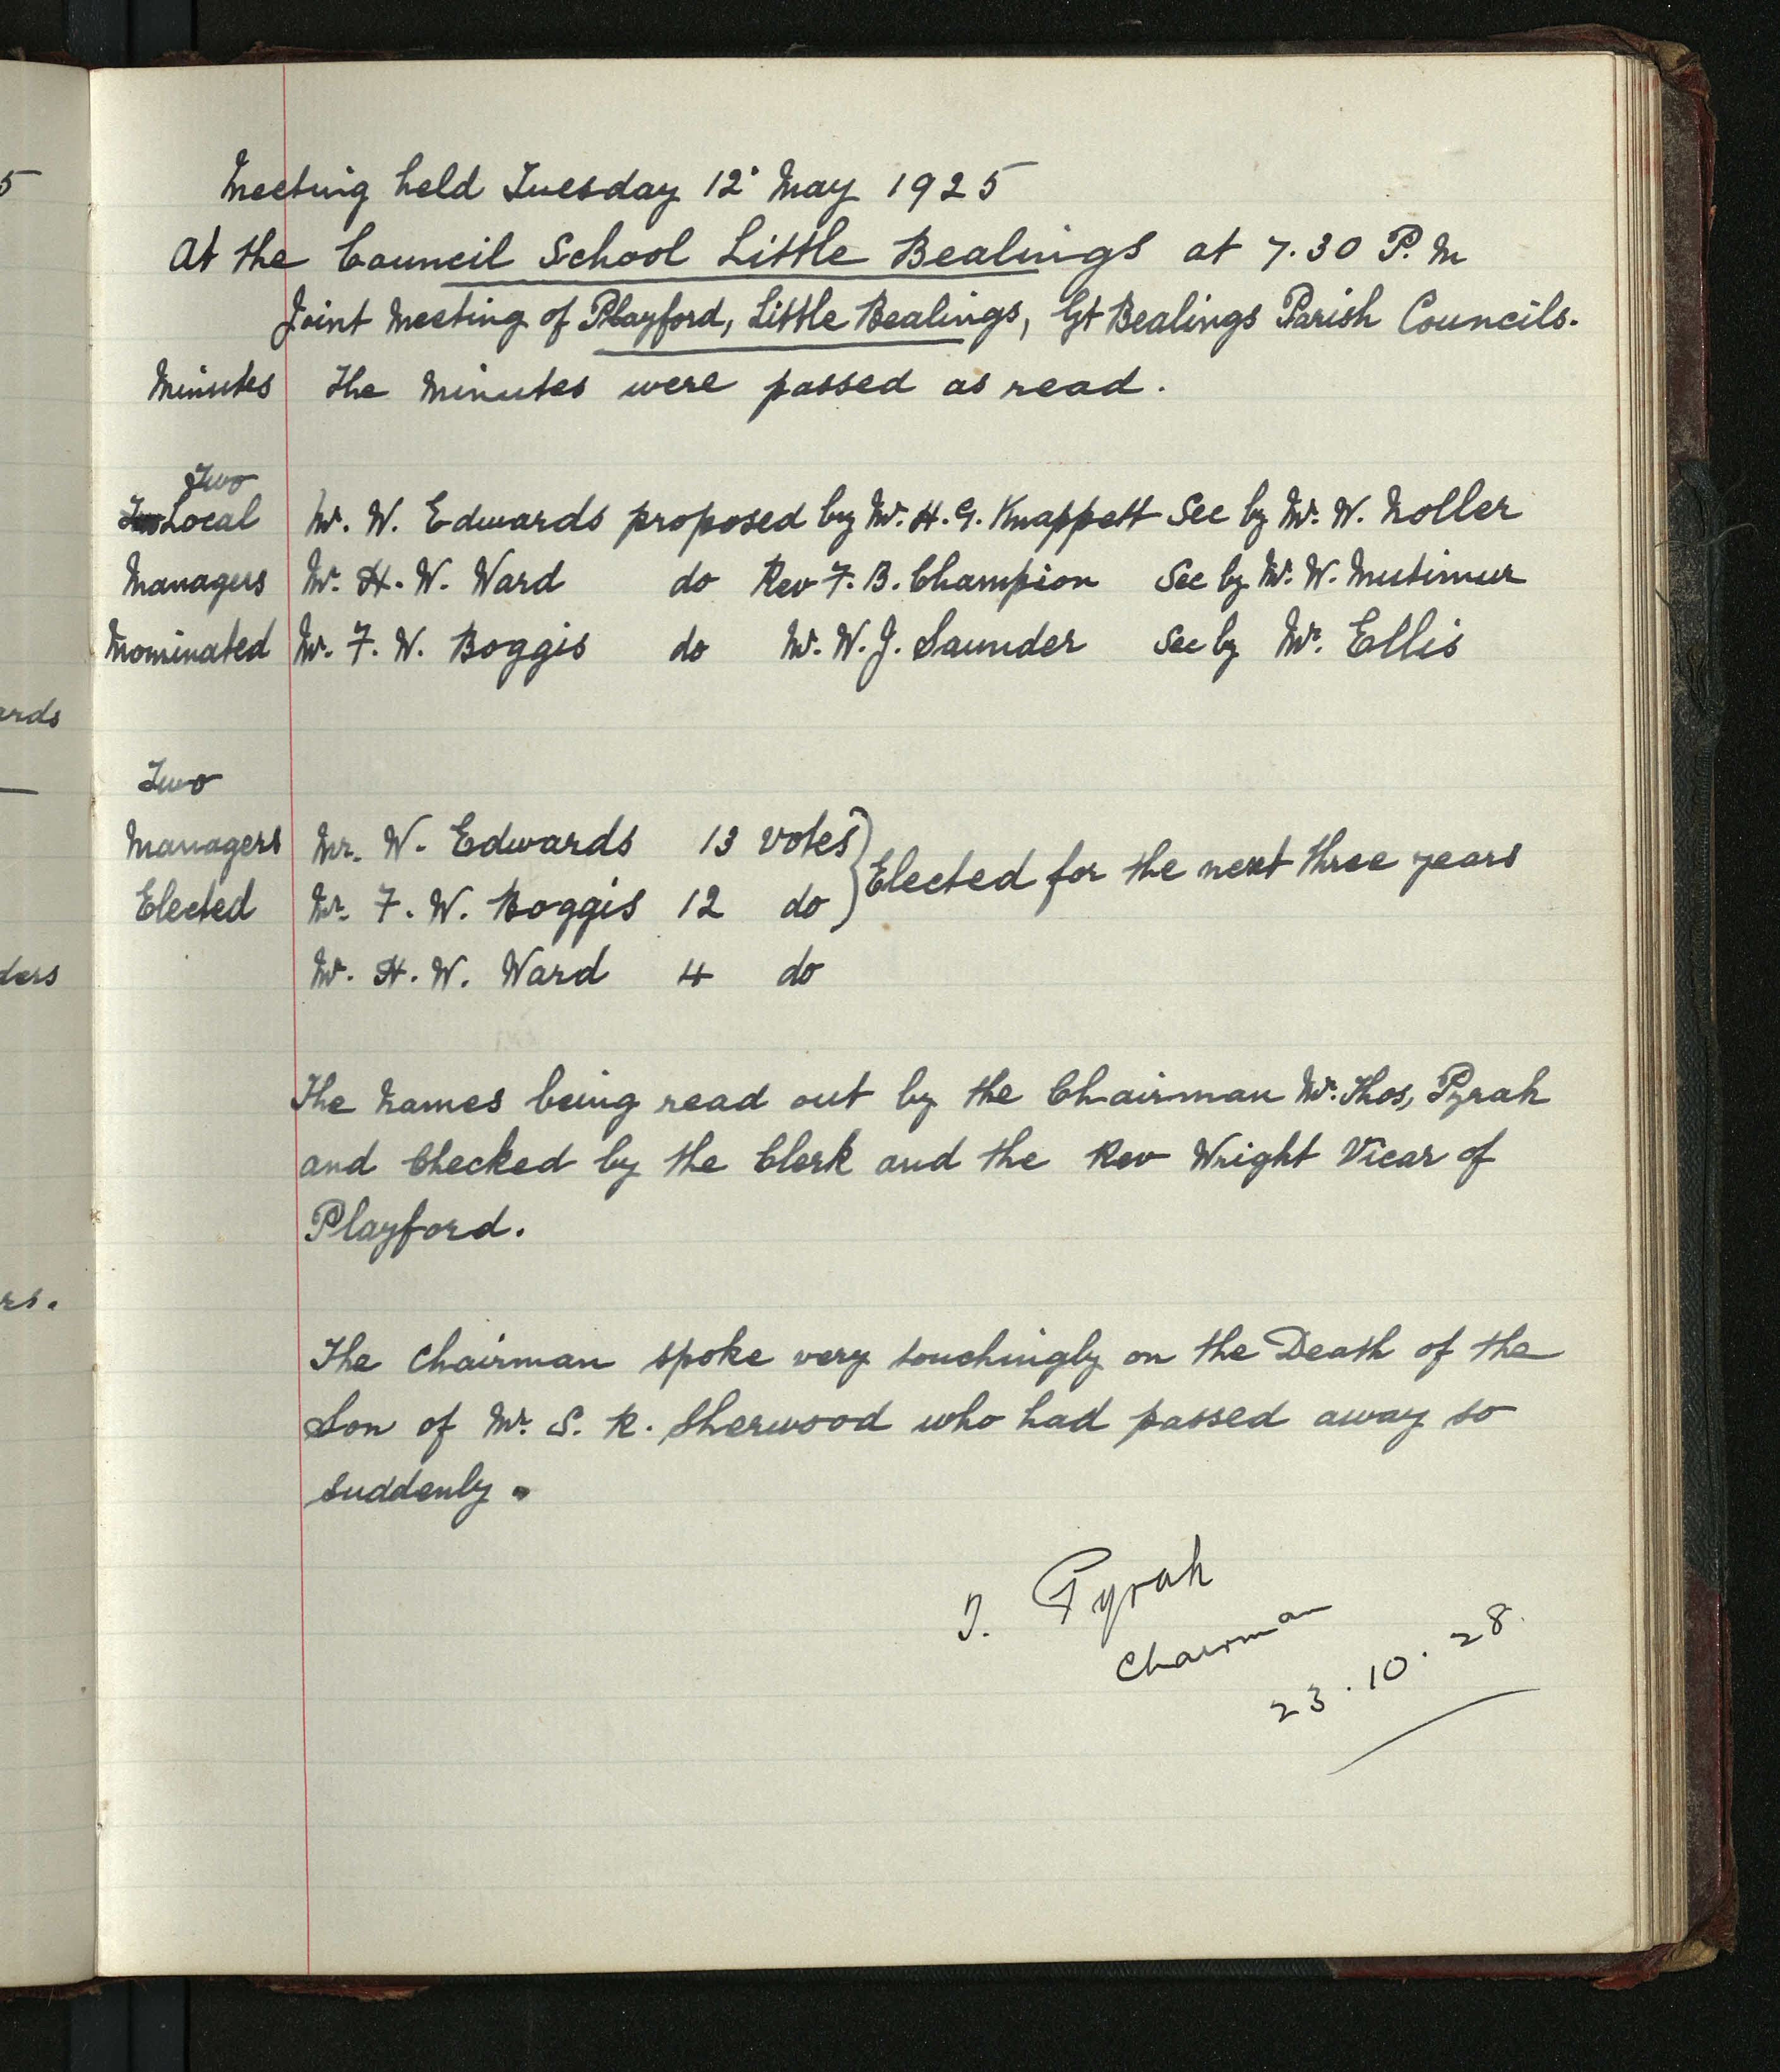 Meeting held Tuesday 12 May 1925
At the Council School Little Bealings at 7.30 P.M
Joint Meeting of Playford, Little Bealings, Gt Bealings Parish Councils.
Minutes The Minutes were passed as read.
Two
Local Mr. W. Edwards proposed by Mr. H. G. Knappett Sec by Mr. W. Noller
Managers Mr. H. W. Ward do Rev F. B. Champion Sec by Mr. W. Mutimer
Nominated Mr. F. W. Boggis do Mr. W. J. Saunder Sec by Mr. Ellis
Two
Managers Mr. W. Edwards 13 votes
Elected for the next three years
Elected Mr. F. W. Boggis 12 do
Mr. H. W. Ward 4 do
The Names being read out by the Chairman Mr. Thos, Pyrah
and Checked by the Clerk and the Rev Wright Vicar of
Playford.
The Chairman spoke very touchingly on the Death of the
Son of Mr. S. R. Sherwood who had passed away so
suddenly.
T. Pyrah
Chairman
23.10.28.
5
ards
ders
rs.